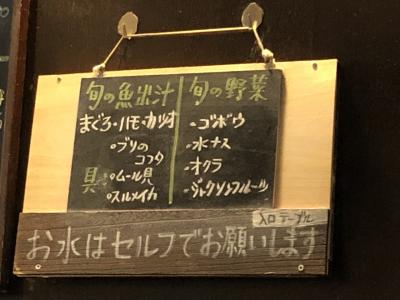 旬の魚出汁
まぐろ・ハモ・カツオ
・ブリの
コフタ
具:・ムール貝
・スルメイカ
旬の野菜
・ゴボウ
・水ナス
・オクラ
・ジャクソンフルーツ
入口テーブル
お水はセルフでお願いします